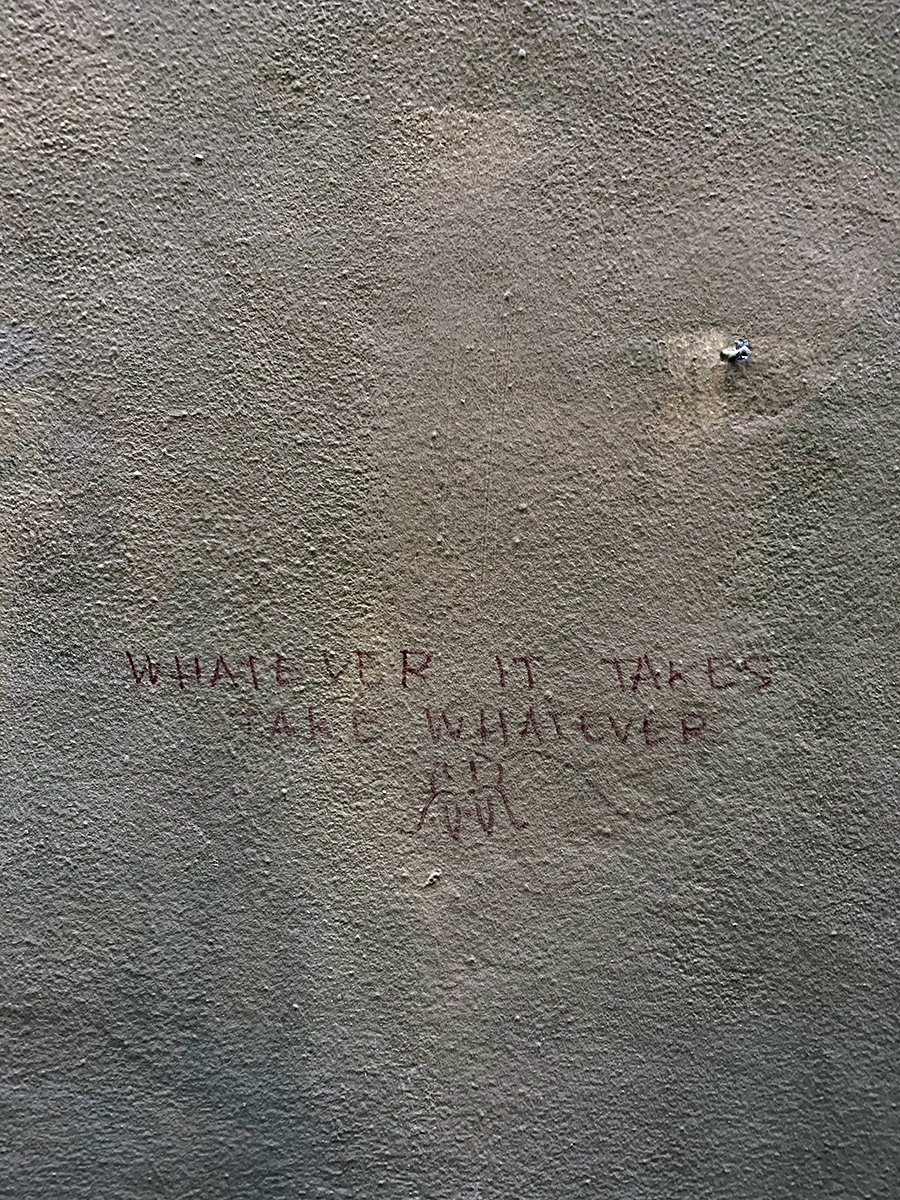 WHATEVER IT TAKES
TAKE WHATEVER